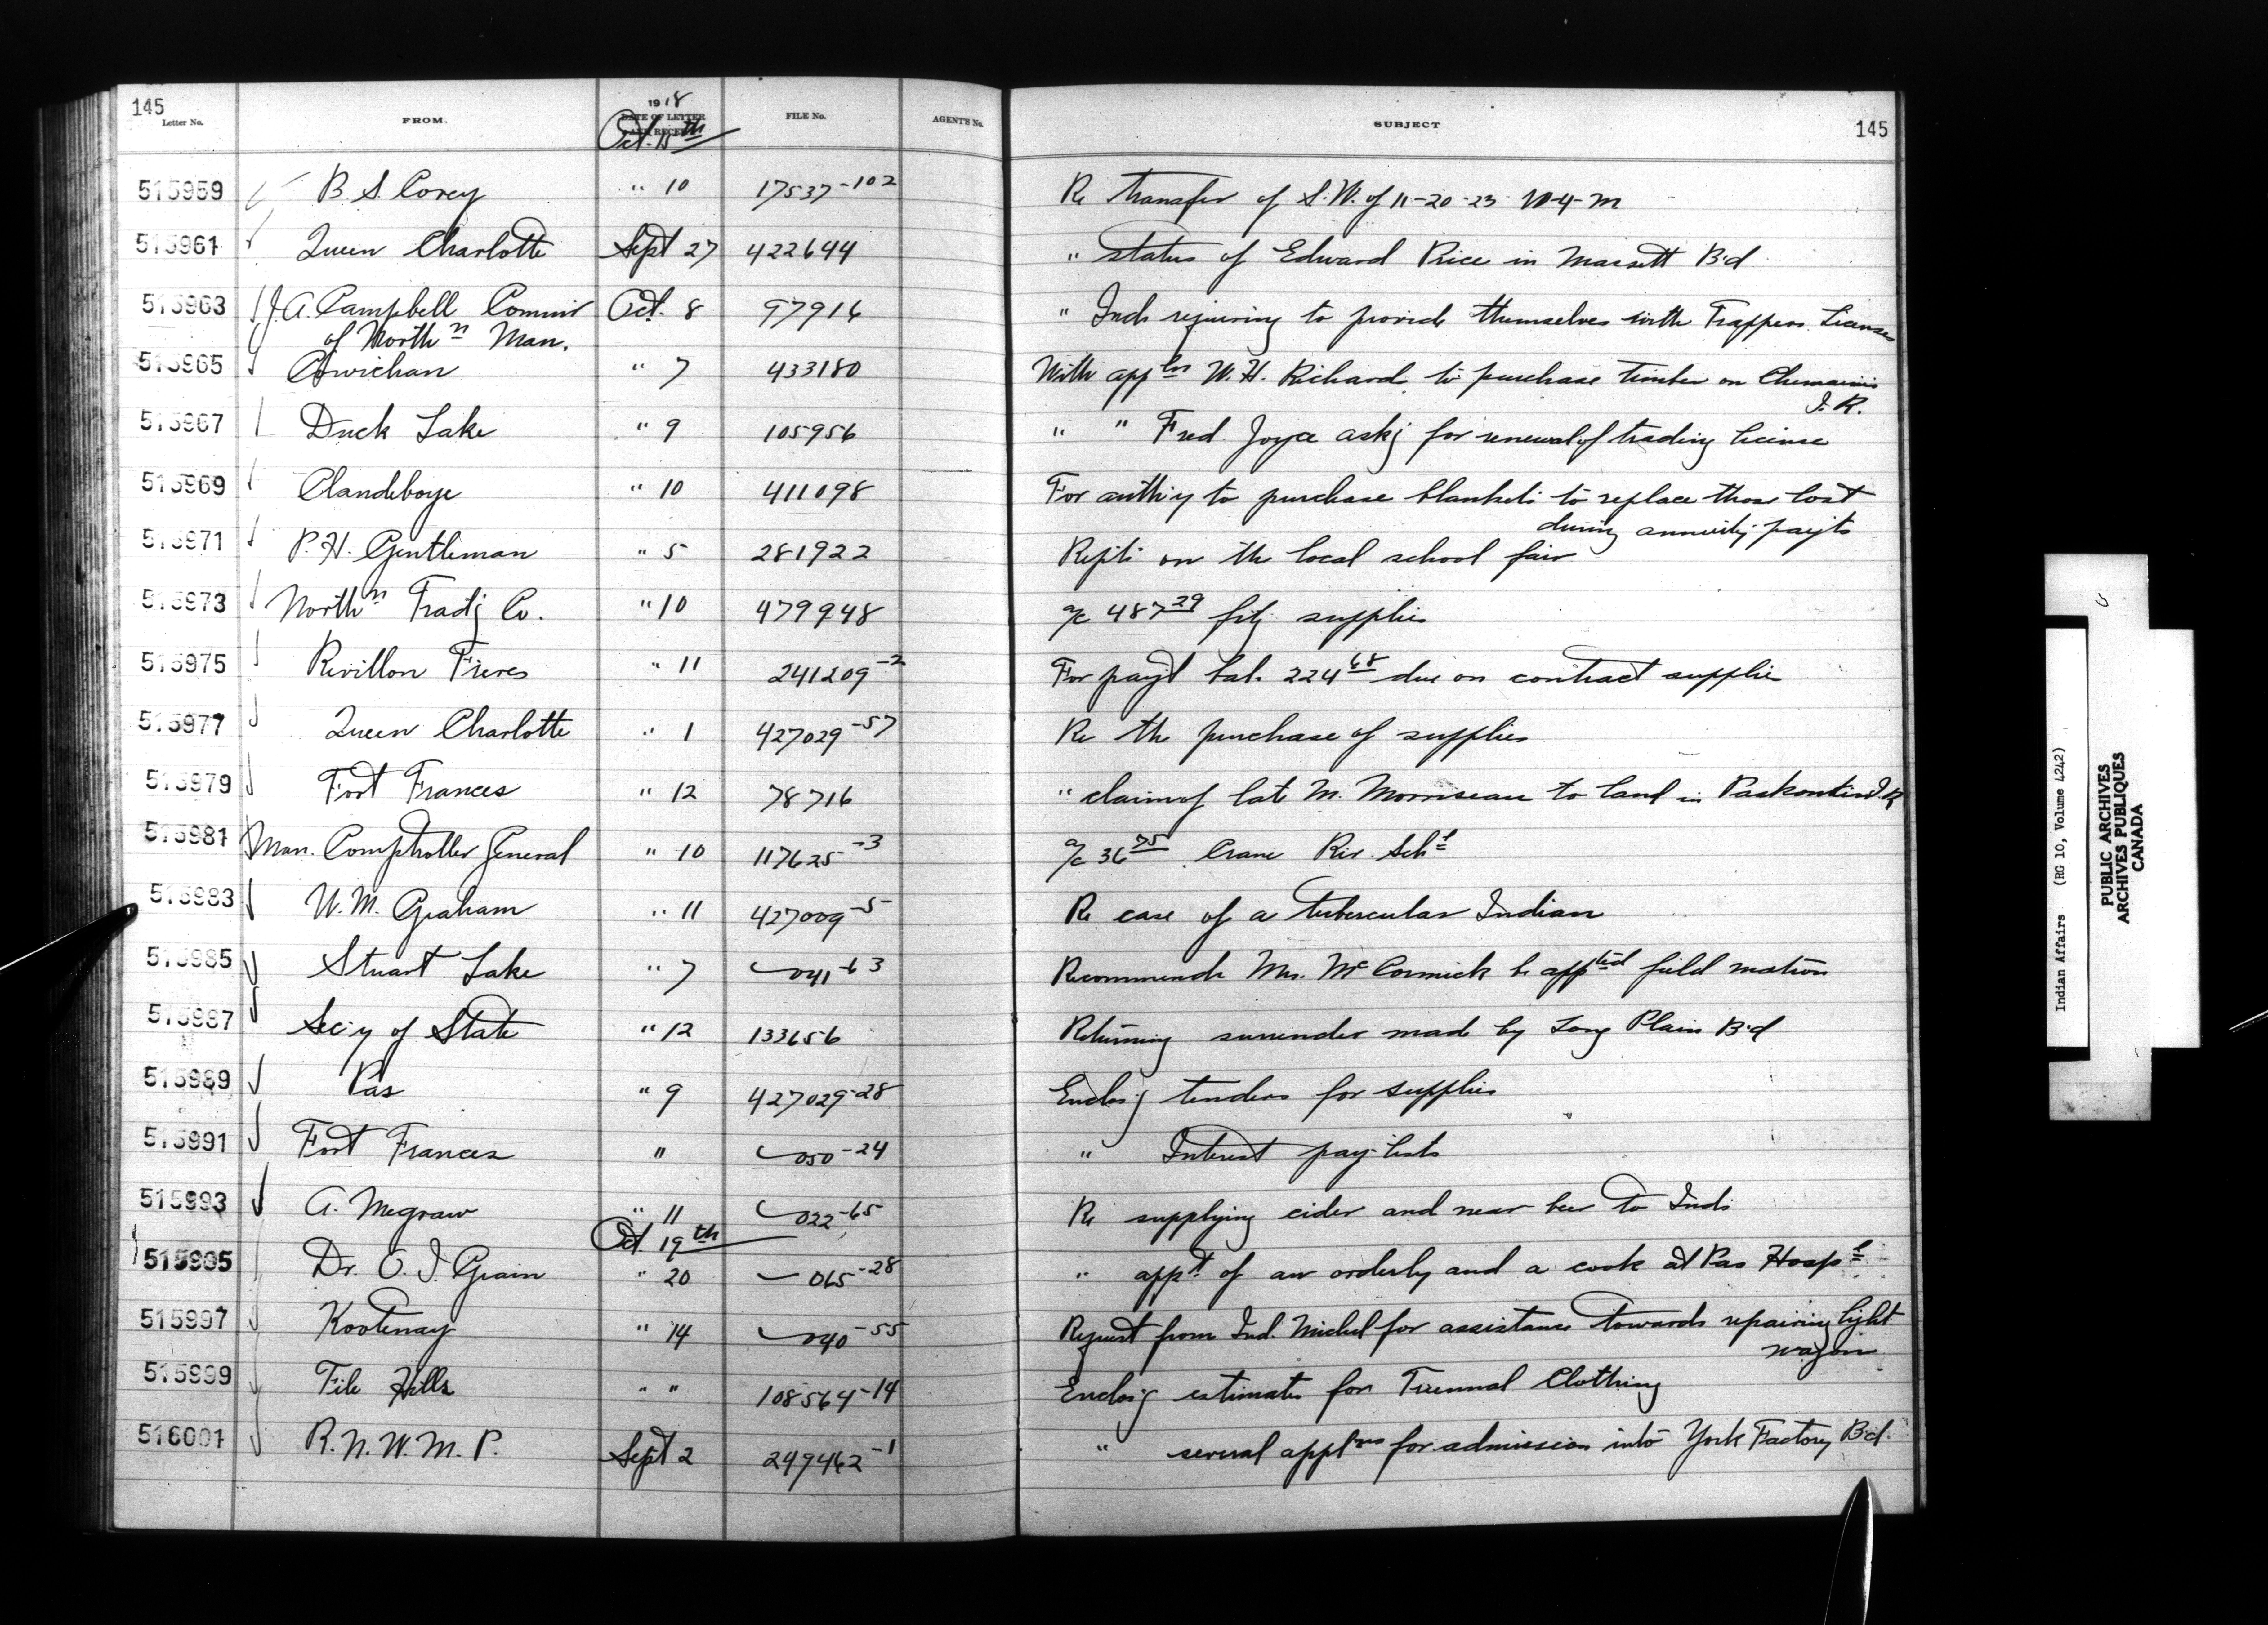 145
Letter No. FROM. 1918 DATE OF LETTER FILE No. AGENT'S No. SUBJECT 145
Oct. 15th
515959 B. S. Corey " 10 17537-102 Re transfer of S.W. of 11-20-23 W-4-M
515961 Queen Charlotte Sept 27 422644 " status of Edward Price in Massett B'd
515963 J. A. Campbell Commr Oct. 8 97916 " Inds requiring to provide themselves with Trappers Licenses
of Northn Man.
515965 Cowichan " 7 433180 With appln W. H. Richards to purchase timber on Chemainus
I. R.
515967 Duck Lake " 9 105956 " " Fred. Joyce askg for renewal of trading license
515969 Clandeboye " 10 411098 For auth'y to purchase blankets to replace those lost
during annuity payts
515971 P. H. Gentleman " 5 281922 Repts on the local school fair
515973 Northn Tradg Co. " 10 479948 a/c 487.29 fitg supplies
515975 Revillon Freres " 11 241209-2 For payt bal. 224.68 due on contract supplies
515977 Queen Charlotte " 1 427029-57 Re the purchase of supplies
515979 Fort Frances " 12 78716 " claim of late M. Morriseau to land in I.R
515981 Man. Comptroller General " 10 117625-3 a/c 36.75 Crane Riv. Schl
515983 W. M. Graham " 11 427009-5 Re case of a tubercular Indian
515985 Stuart Lake " 7 041-63 Recommends Mrs. McCormick be apptd field matron
515987 Sec'y of State " 12 133656 Returning surrender made by Long Plain B'd
515989 Pas " 9 427029-28 Enclos'g tenders for supplies
515991 Fort Frances " 050-24 " Interest pay-lists
515993 A. Megraw " 11 022-65 Re supplying cider and near beer to Inds
Oct. 19th
515995 Dr. O. I. Grain " 20 065-28 " appt of an orderly and a cook at Pas Hospl
515997 Kootenay " 14 040-55 Request from Ind. Michel for assistance towards repairing light
wagon
515999 File Hills " " 108564-14 Enclos'g estimates for Triennial Clothing
516001 R. N. W. M. P. Sept 2 249462-1 " several applns for admission into York Factory B'd
Indian Affairs (RG 10, Volume 4242)
PUBLIC ARCHIVES
ARCHIVES PUBLIQUES
CANADA